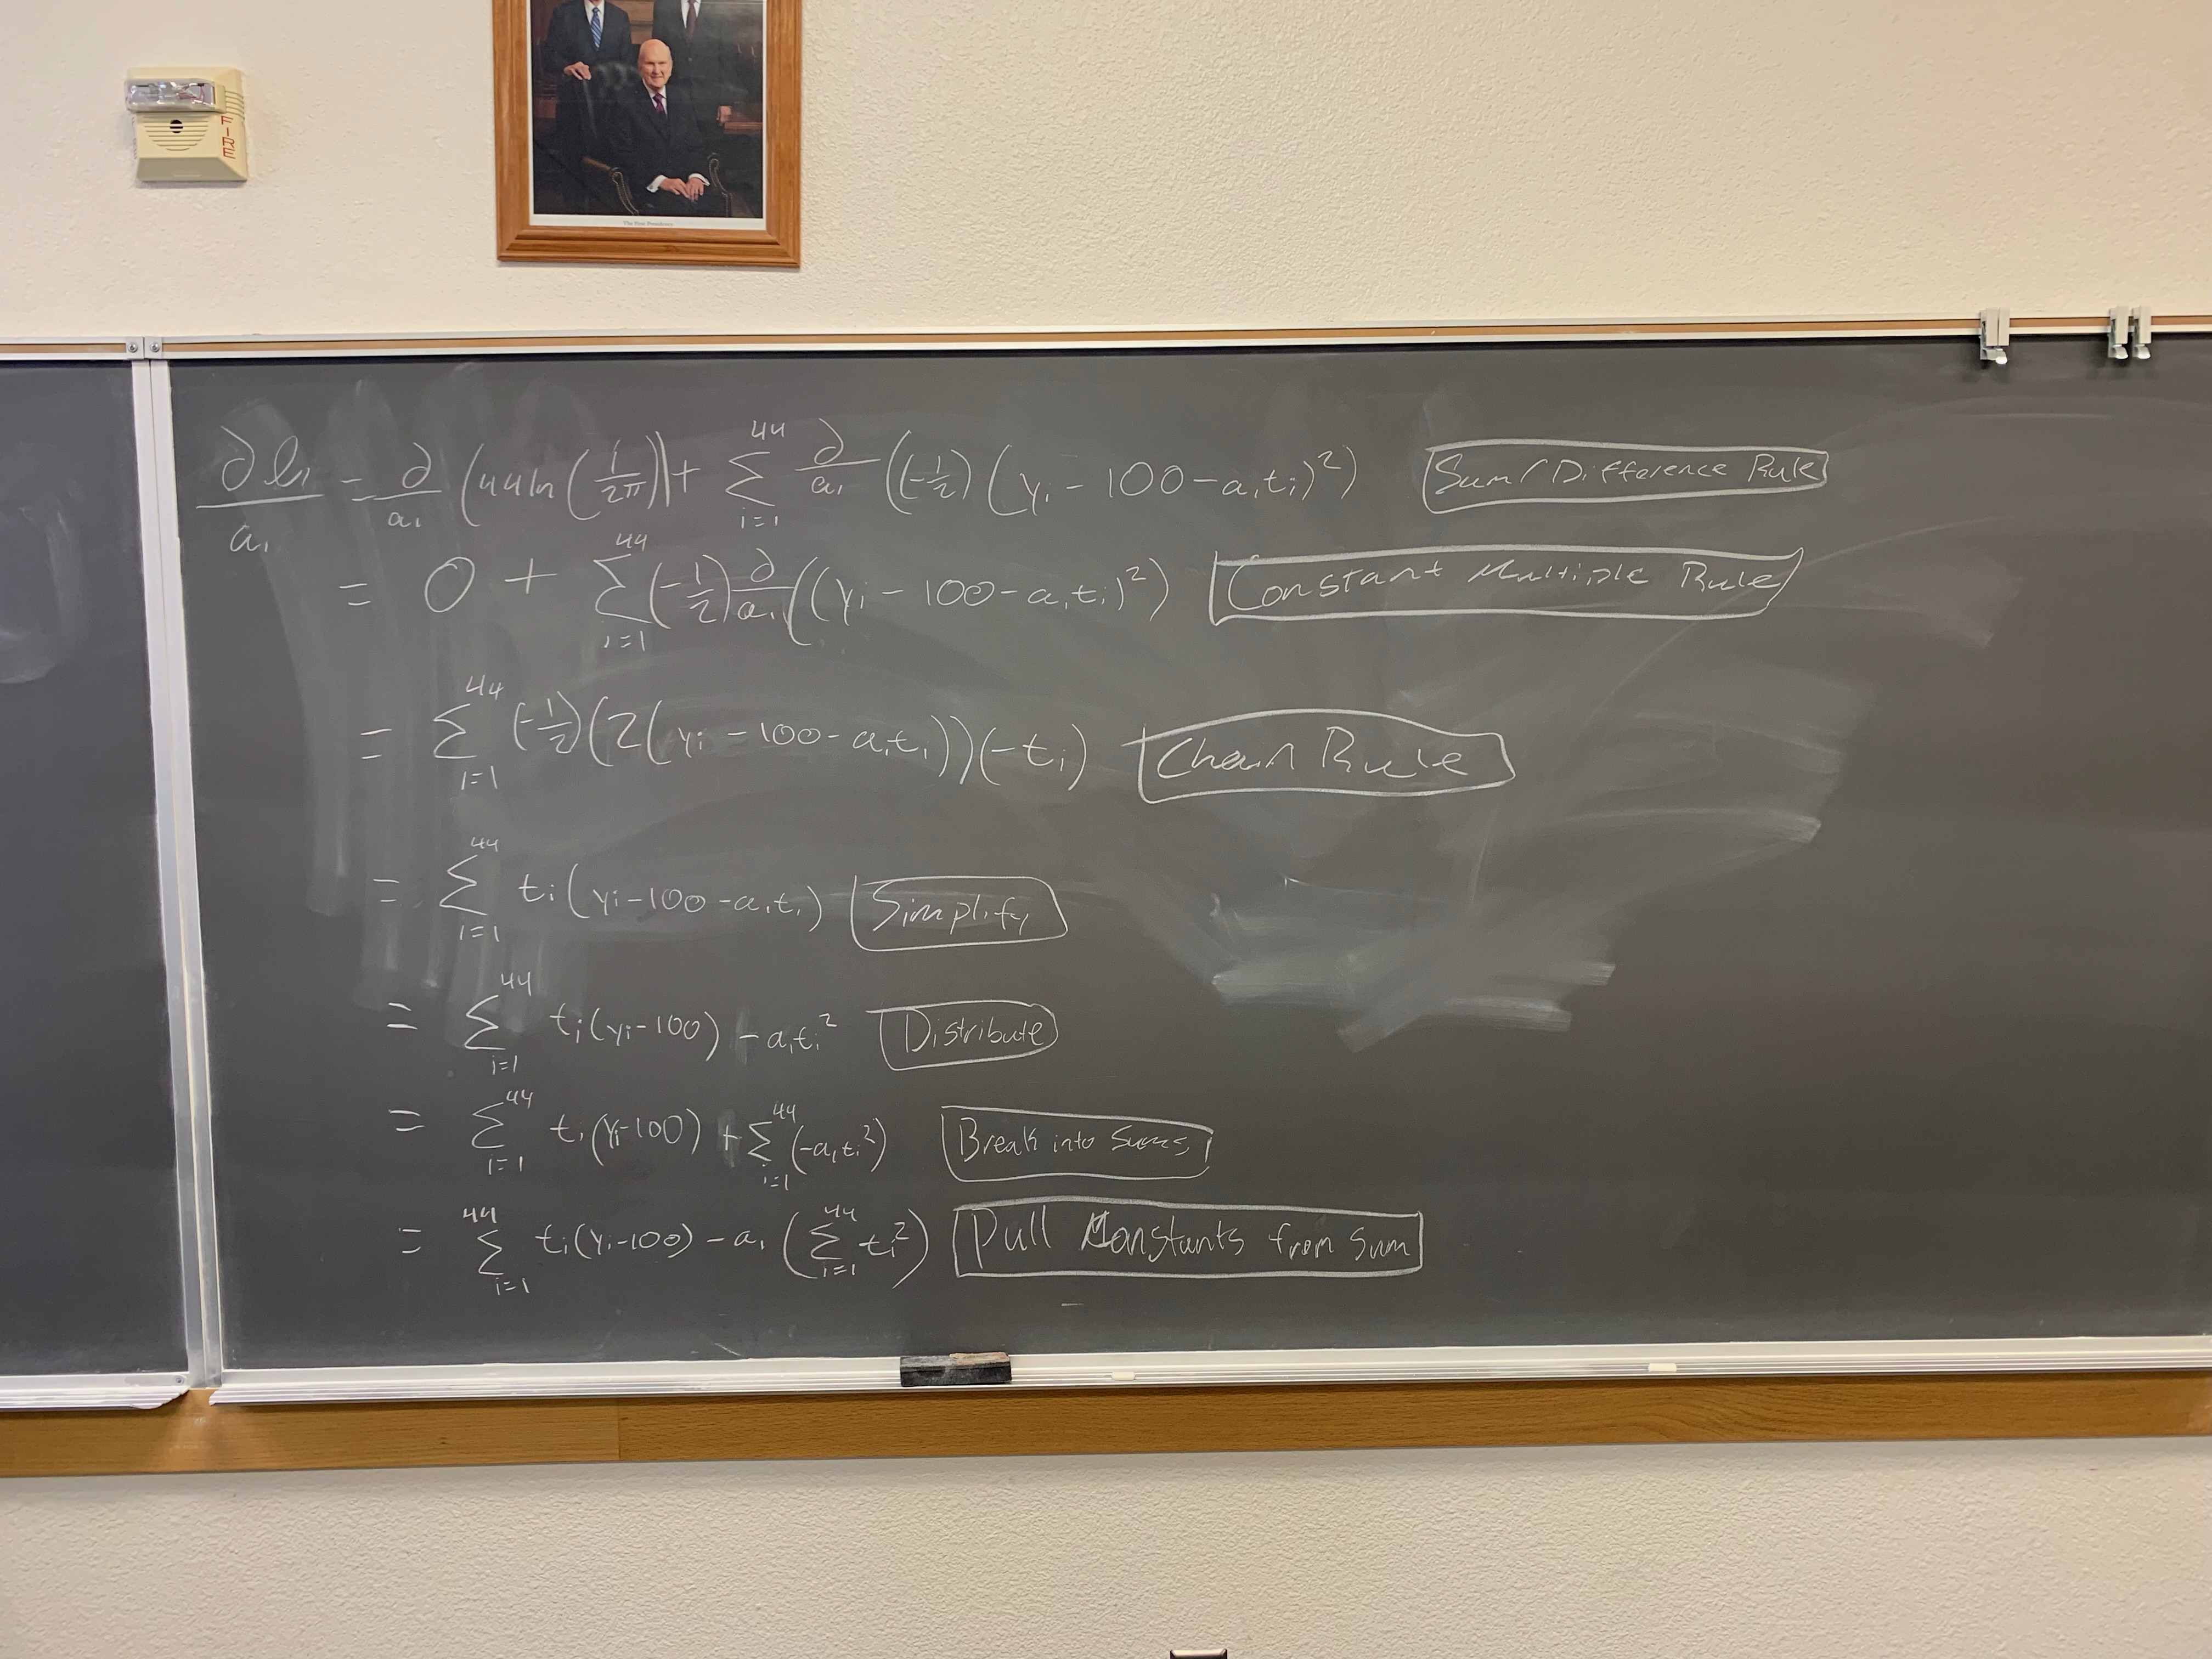 FIRE
The First Presidency
∂ℓ₁/a₁ = ∂/a₁ (44 ln(1/2π)) + ∑_{i=1}^{44} ∂/a₁ ((-1/2)(yᵢ - 100 - a₁tᵢ)²) Sum/Difference Rule
= 0 + ∑_{i=1}^{44} (-1/2) ∂/a₁ ((yᵢ - 100 - a₁tᵢ)²) Constant Multiple Rule
= ∑_{i=1}^{44} (-1/2)(2(yᵢ - 100 - a₁tᵢ))(-tᵢ) Chain Rule
= ∑_{i=1}^{44} tᵢ(yᵢ - 100 - a₁tᵢ) Simplify
= ∑_{i=1}^{44} tᵢ(yᵢ - 100) - a₁tᵢ² Distribute
= ∑_{i=1}^{44} tᵢ(yᵢ - 100) + ∑_{i=1}^{44} (-a₁tᵢ²) Break into Sums
= ∑_{i=1}^{44} tᵢ(yᵢ - 100) - a₁(∑_{i=1}^{44} tᵢ²) Pull Constants from Sum